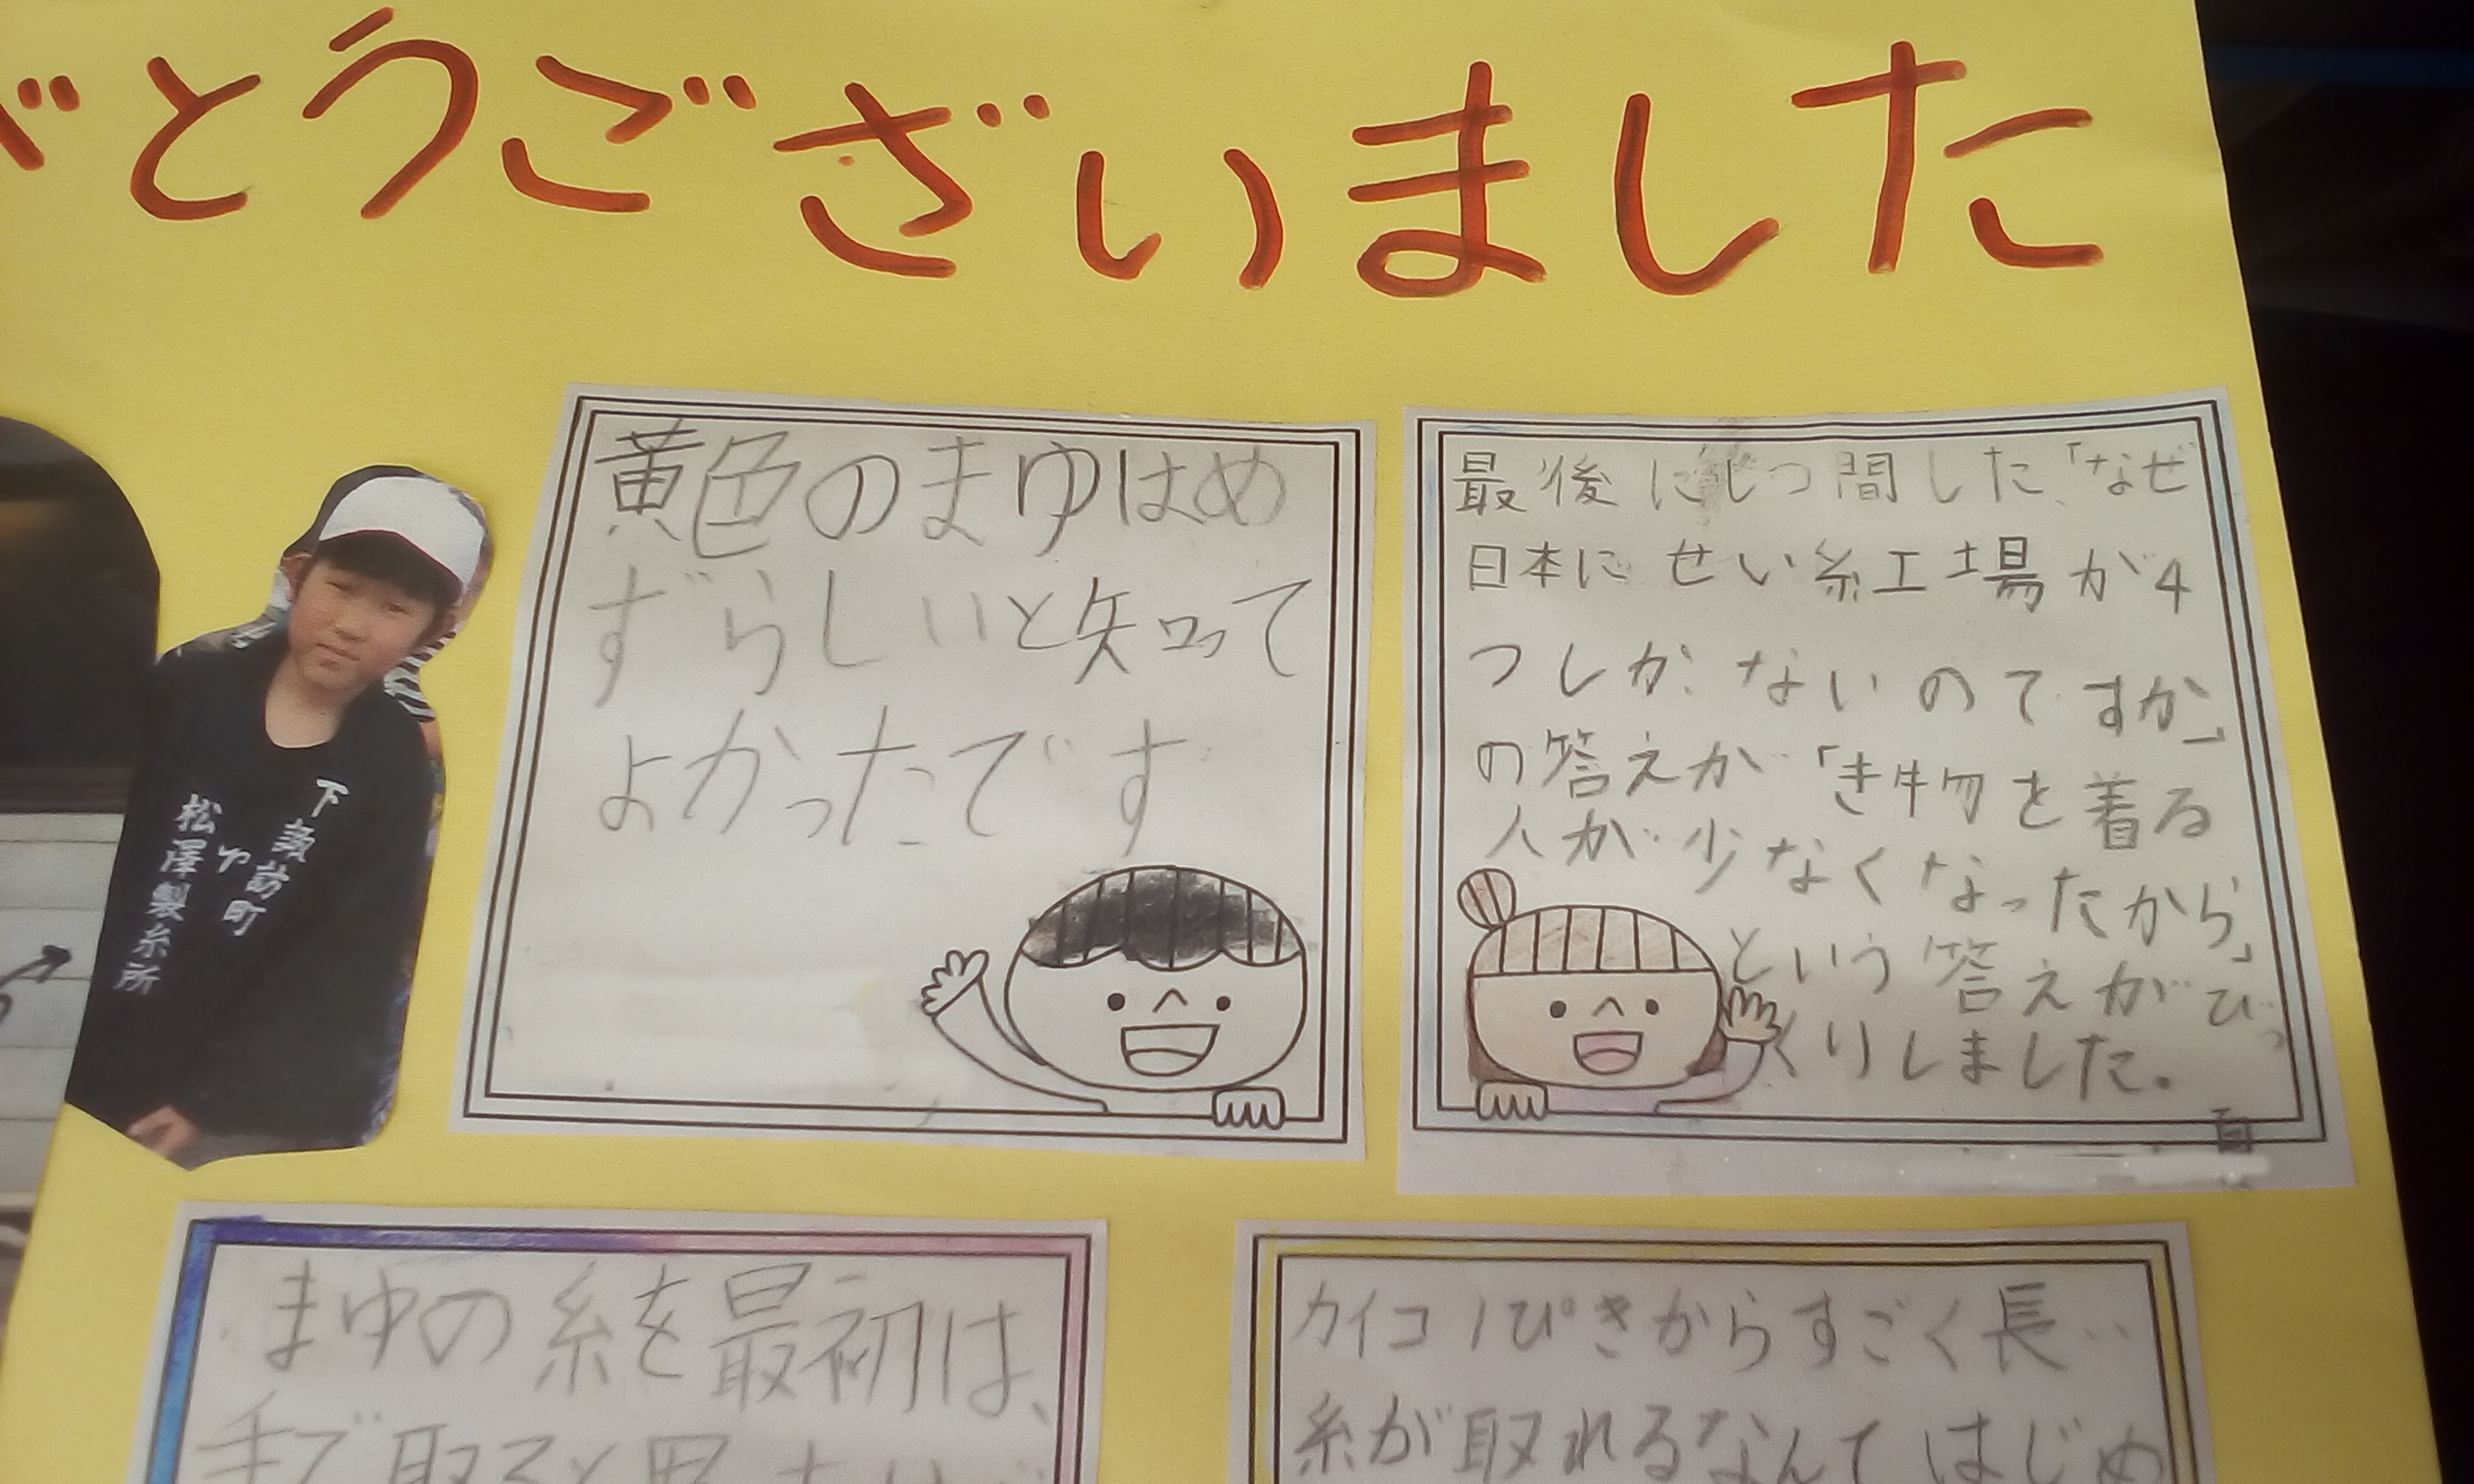 がとうございました
黄色のまゆはめ
ずらしいと知って
よかったです
最後にしつ間した、「なぜ
日本にせい糸工場が4
つしかないのですか」
の答えが「き物を着る
人が少なくなったから」
という答えがびっ
くりしました。
下諏訪町
松澤製糸所
まゆの糸を最初は、
手で取ると思
カイコ1ぴきからすごく長い
糸が取れるなんてはじめ